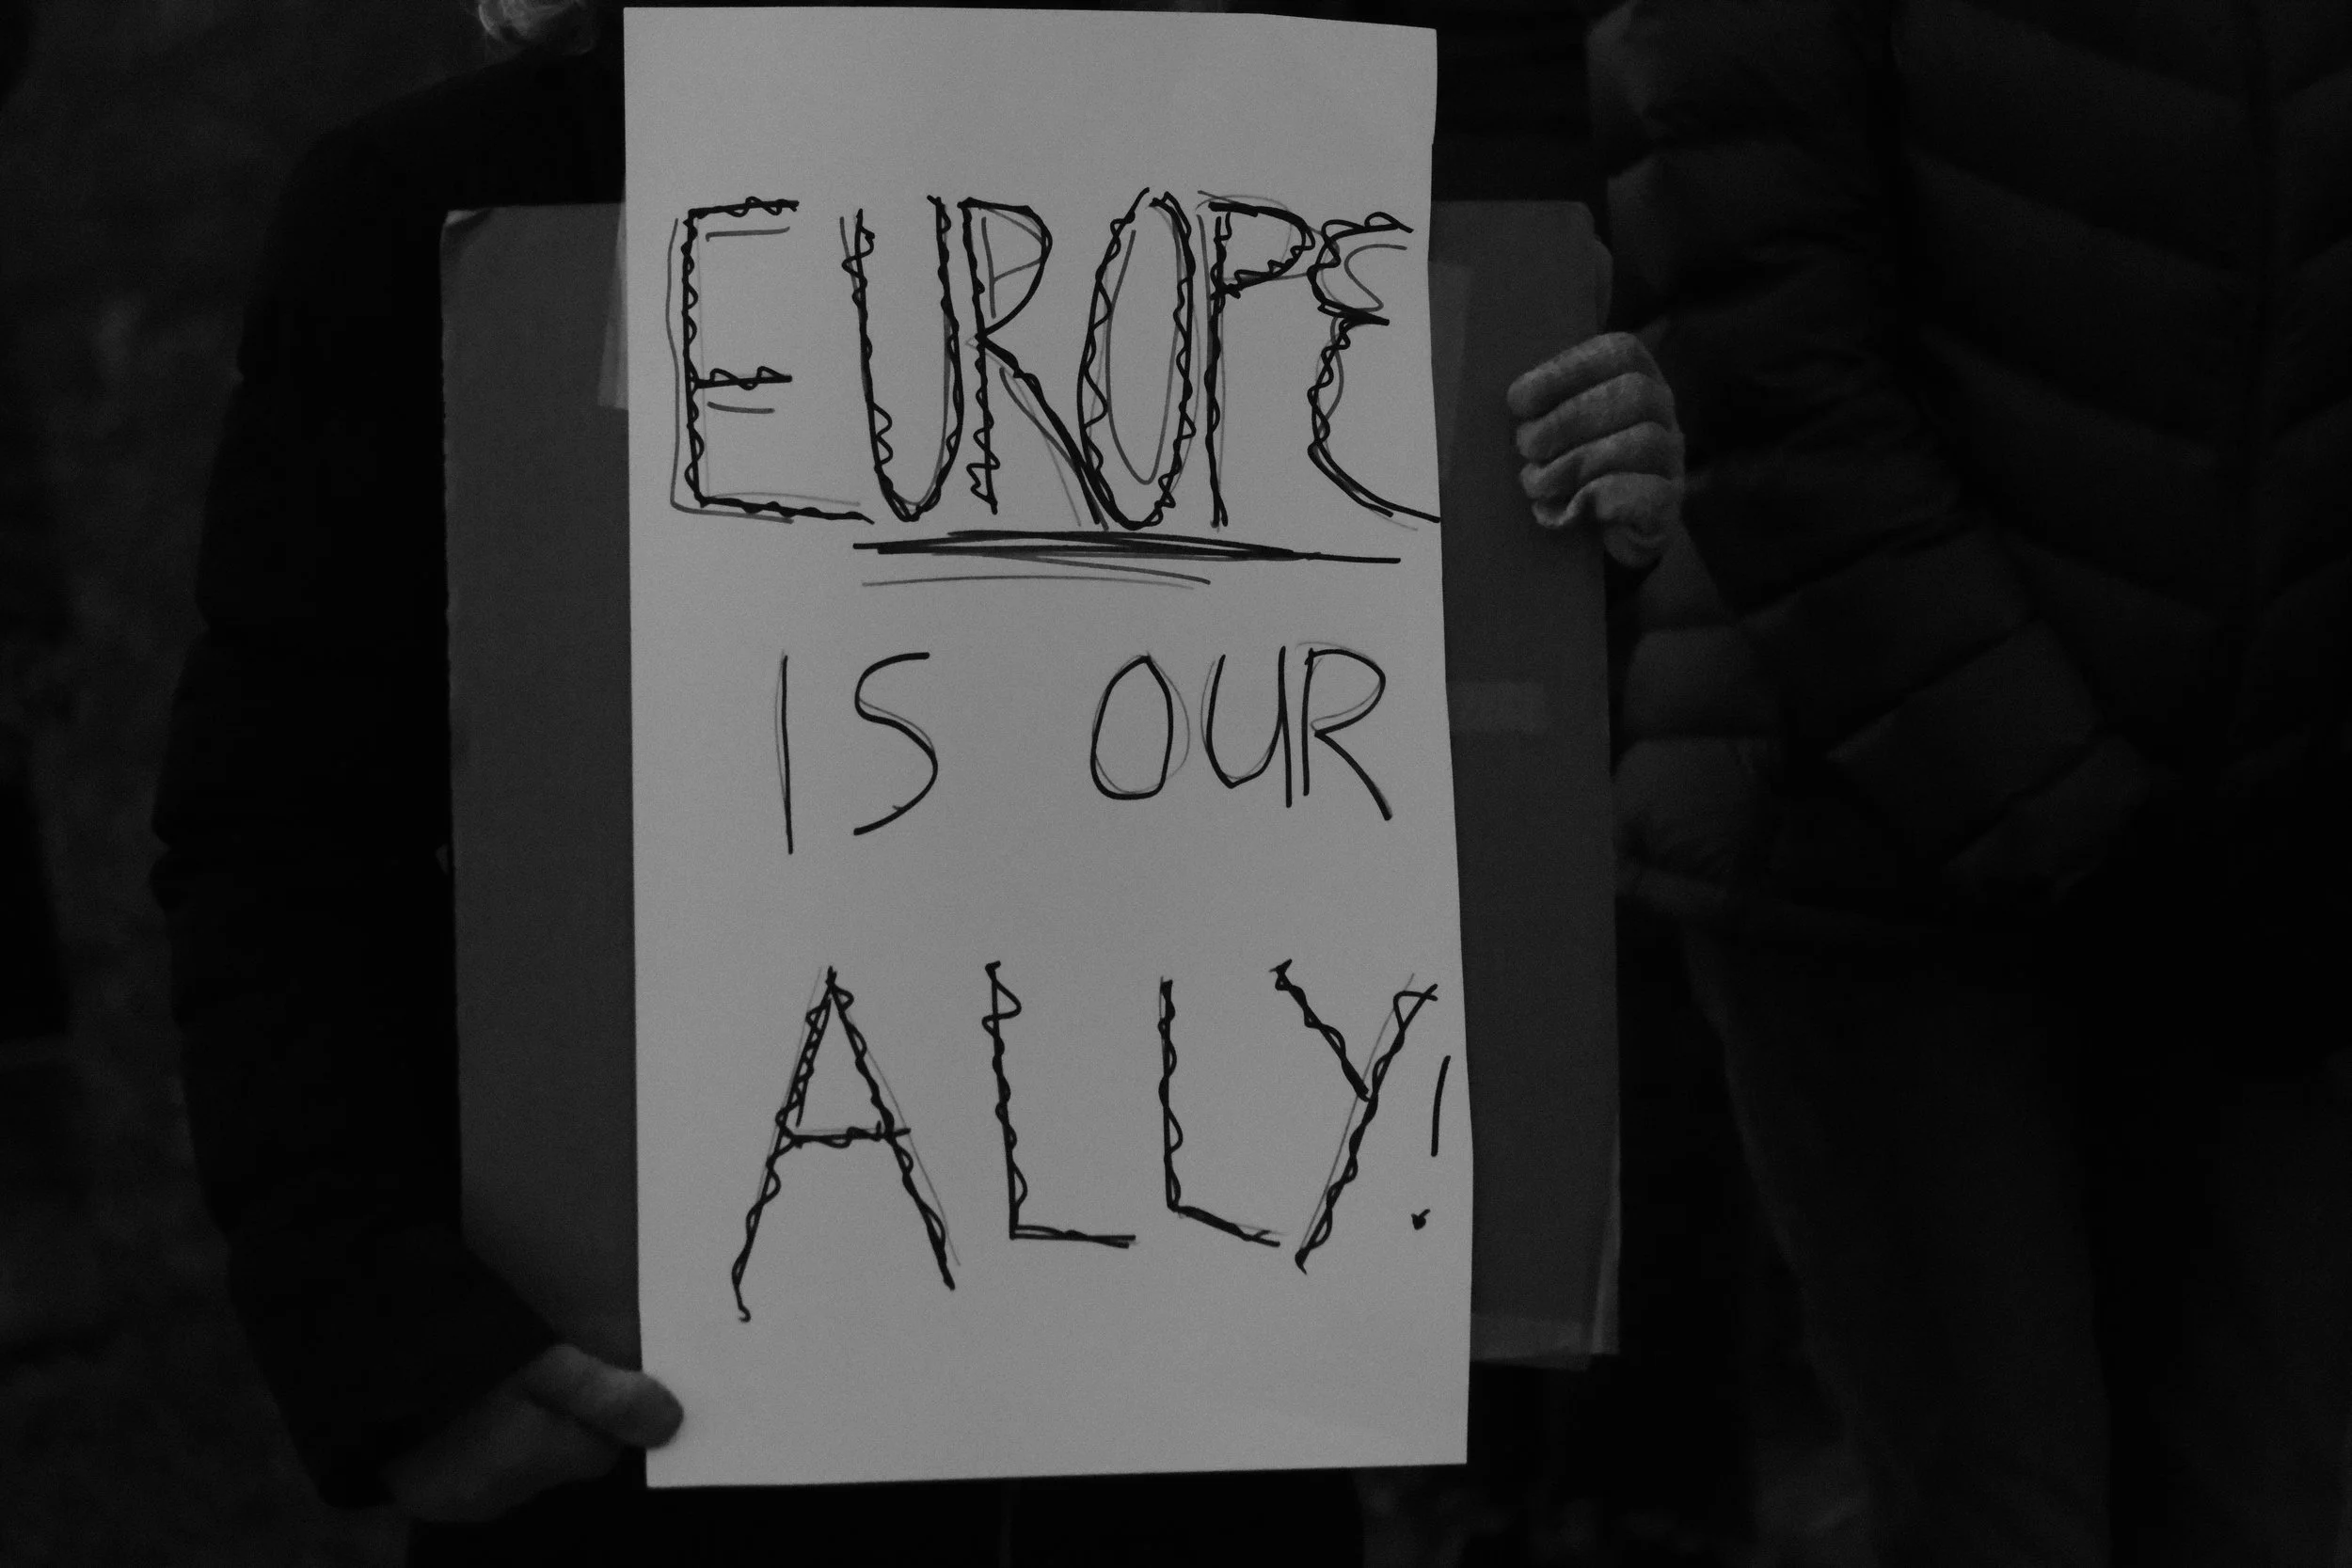 EUROPE
IS OUR
ALLY!